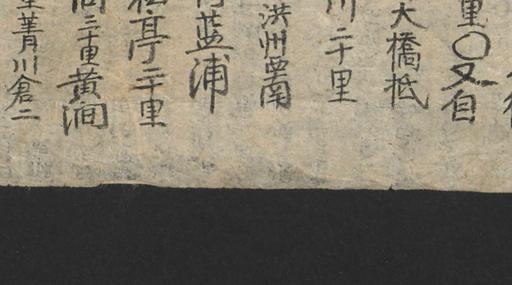 里〇又自
大橋抵
川二十里
洪州西南
藍浦
亭二十里
三十里黄澗
菁川倉二